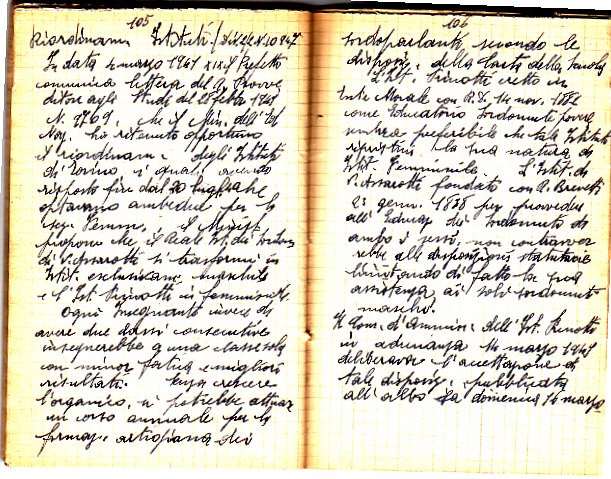 105
Riordinam Istituti / 
In data 4 marzo 1941 XIX il Prefetto
comunica lettera del R. Provve
ditore agli Studi del 28 febb. 1941
N. 9769. che il Min. dell'Ed
Naz. ha ritenuto opportuno
il riordinam. degli Istituti
di Torino i quali avendo
risposto fin dal 20 luglio
optavano ambedue per la
sez. Femm. il Minist.
propone che il Reale Ist. dei Sordom.
di V. Assarotti si trasformi in
Istit. esclusivam. maschile
e l'Ist. Prinotti in femminile.
Ogni Insegnante invece di
avere due classi consecutive
insegnerebbe a una classe sola
con minor fatica e migliori
risultati. Senza crescere
l'organico, si potrebbe attuare
un corso annuale per la
formaz. artigiana dei
106
sordoparlanti secondo le
disposiz. della Carta della Scuola
L'Ist. Prinotti eretto in
Ente Morale con R.D. 14 nov. 1881
come Educatorio Sordomute povere
sembra preferibile che tale Istituto
ripristini la sua natura di
Istit. Femminile. L'Istit. di
V. Assarotti fondato con R. Brevetti
23 genn. 1838 per provvedere
all'Educaz. dei sordomuti di
ambo i sessi, non contravver
rebbe alle disposizioni statutarie
limitando di fatto la sua
assistenza ai soli sordomuti
maschi.
Il Com. d'ammin. dell'Ist. Prinotti
in adunanza 14 marzo 1941
deliberava l'accettazione di
tale disposiz. pubblicata
all'albo la domenica 16 marzo